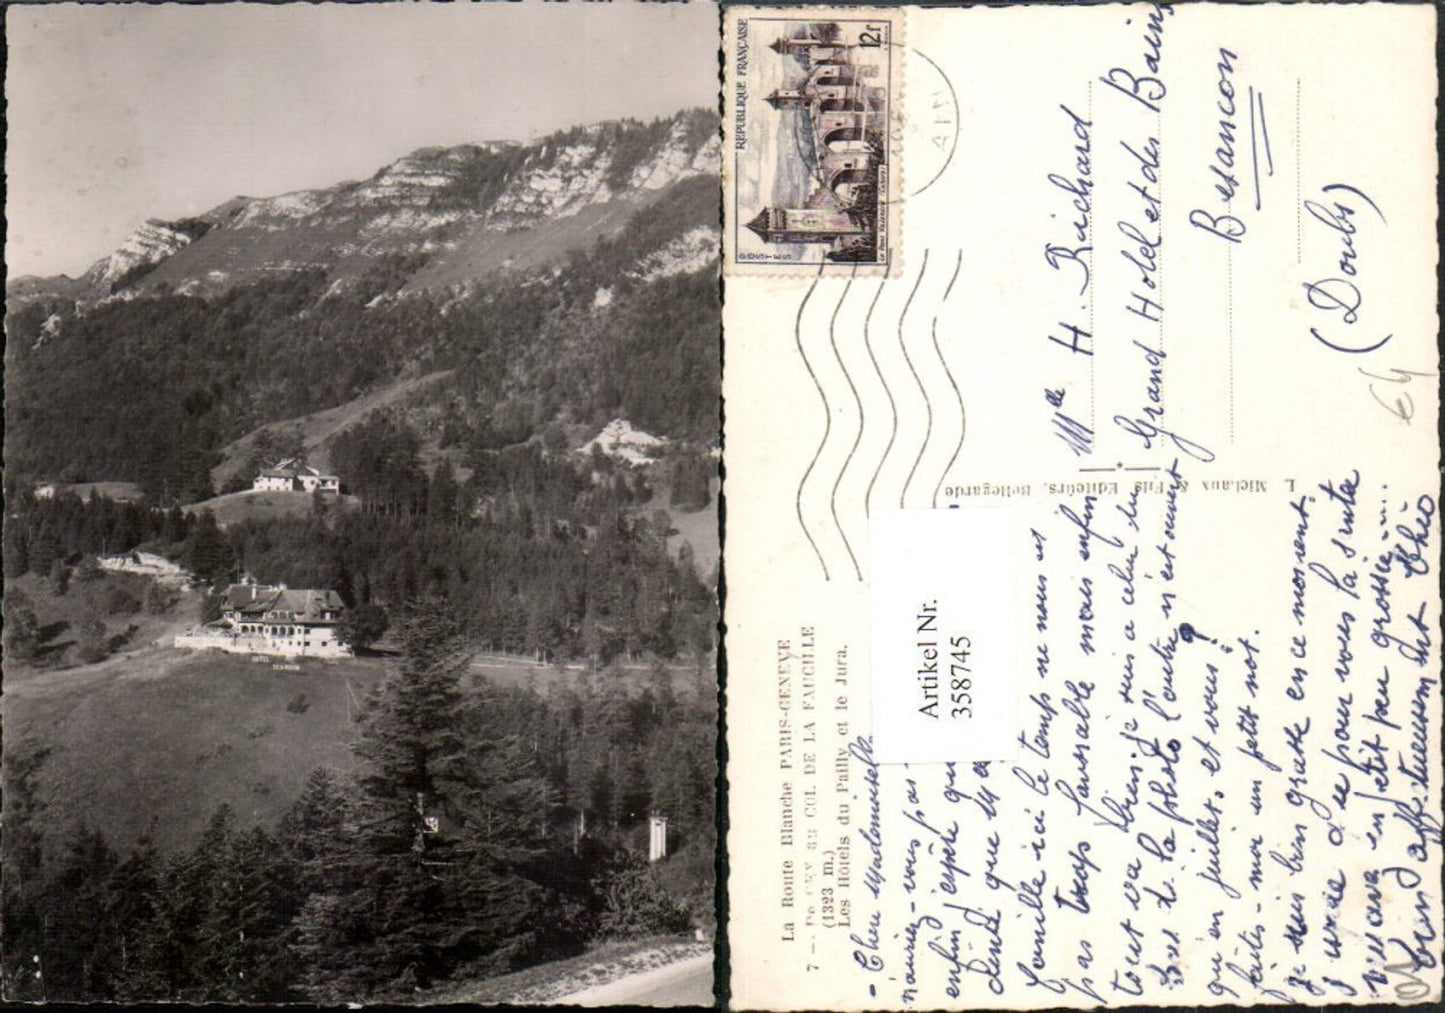 HOTEL
REPUBLIQUE FRANÇAISE
12f
POSTES
Le Pont Valentré Cahors
La Route Blanche PARIS-GENEVE
7 — De GEX au COL DE LA FAUCILLE
(1323 m.)
Les Hôtels du Pailly et le Jura.
L. Michaux & Fils, Editeurs, Bellegarde
Artikel Nr.
358745
Mlle H. Richard
Grand Hotel et des Bains
Besançon
(Doubs)
- Chère Mademoiselle
pas
enfin j'espère que
santé que
famille ici le temps ne nous est
pas trop favorable mais enfin
tout va bien, je suis à celui du
bas de la photo l'autre n'est ouvert
qu'en juillet. et vous?
faites-moi un petit mot.
je suis bien grette en ce moment
de pour vous la suite
un petit peu grossie...
Grand affectueusement Théo